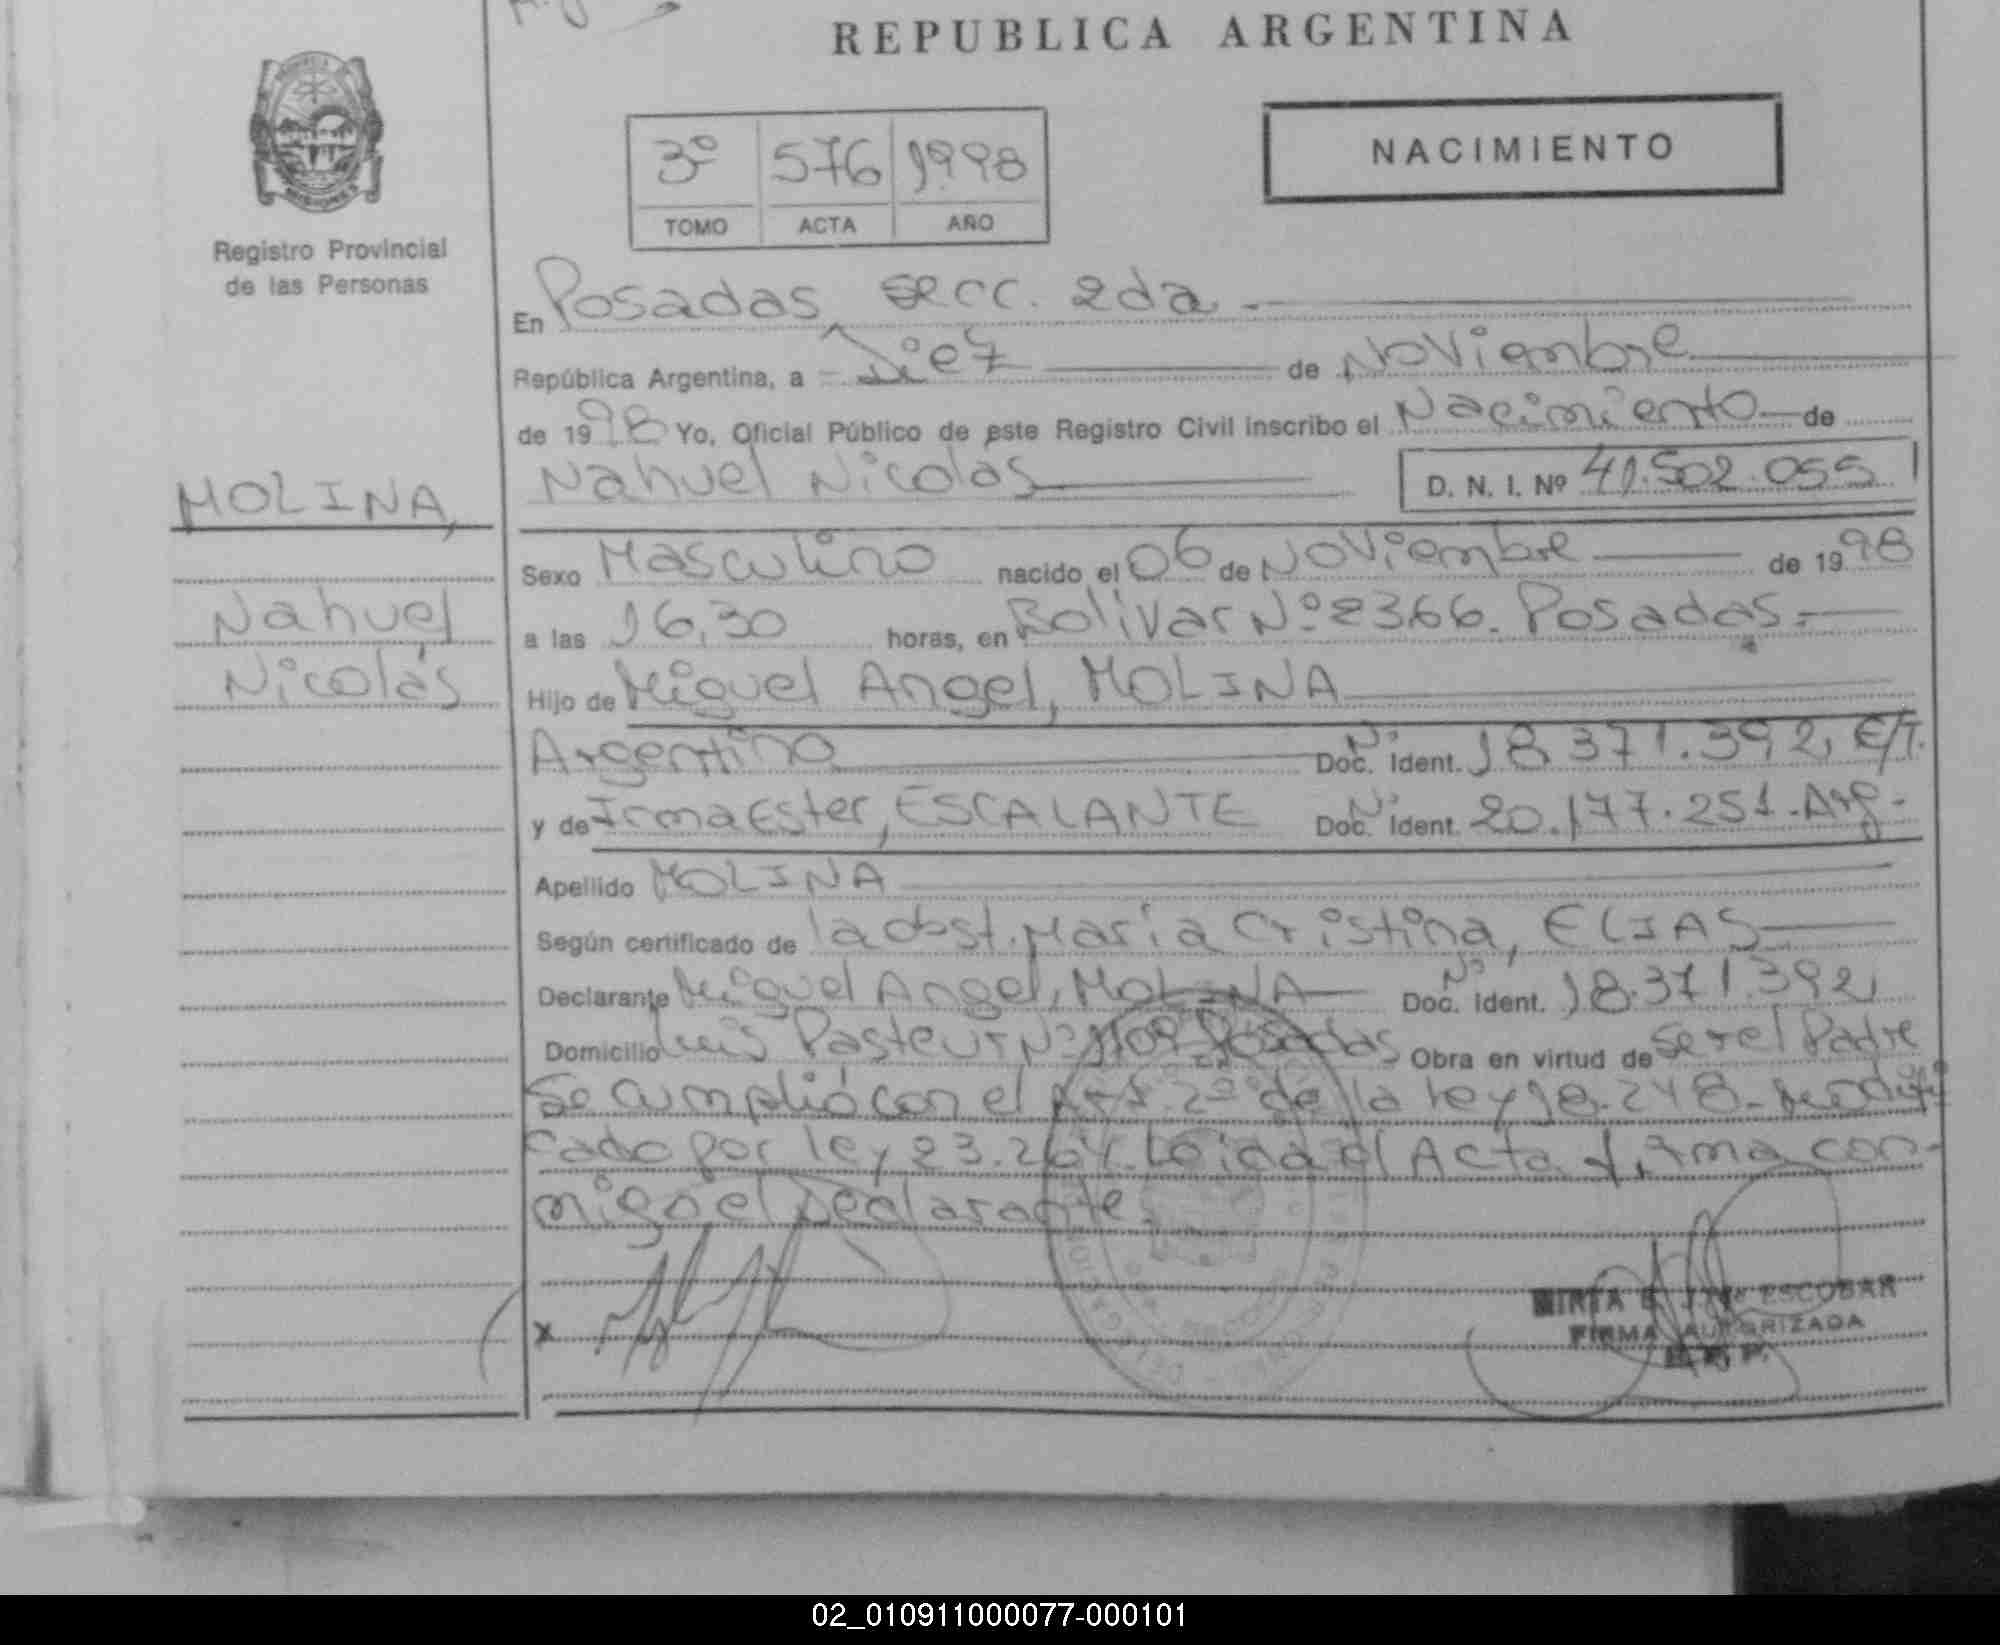 REPUBLICA ARGENTINA
NACIMIENTO
3º 576 1998
TOMO ACTA AÑO
Registro Provincial
de las Personas
En Posadas, secc. 2da.
República Argentina, a Diez de Noviembre
de 1998 Yo, Oficial Público de este Registro Civil inscribo el Nacimiento de
Nahuel Nicolas D. N. I. Nº 41.502.055
MOLINA,
Nahuel
Nicolás
Sexo Masculino nacido el 06 de Noviembre de 1998
a las 16,30 horas, en Bolivar Nº 2366. Posadas.-
Hijo de Miguel Angel, MOLINA
Argentino Nº Doc. Ident. 18.371.392, E/T.
y de Irma Ester, ESCALANTE Nº Doc. Ident. 20.177.251.Arg.
Apellido MOLINA
Según certificado de la obst. Maria Cristina, ELIAS
Declarante Miguel Angel, MOLINA Nº Doc. Ident. 18.371.392,
Domicilio Luis Pasteur Nº Posadas Obra en virtud de ser el Padre
Se cumplió con el Art. 2º de la ley 18.248.- modifi
cado por ley 23.264. Leida el Acta firma con-
migo el Declarante.
x
MIRTA ESCOBAR
FIRMA AUTORIZADA
R. P. P.
02_010911000077-000101